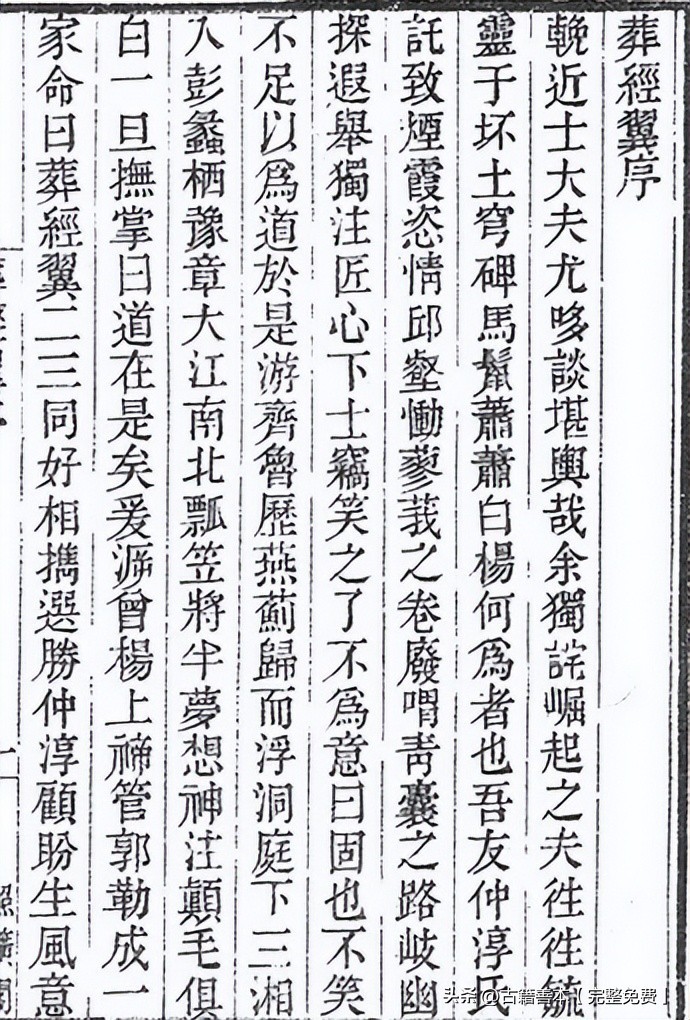 葬經翼序
輓近士大夫尤哆談堪輿哉余獨詫崛起之夫徃徃毓
靈于坏土穹碑馬鬛蕭蕭白楊何爲者也吾友仲淳氏
託致煙霞恣情邱壑慟蓼莪之卷廢喟靑囊之路岐幽
探遐舉獨注匠心下士竊笑之了不爲意曰固也不笑
不足以爲道於是游齊魯歷燕薊歸而浮洞庭下三湘
入彭蠡栖豫章大江南北瓢笠將半夢想神注顚毛俱
白一旦撫掌曰道在是矣爰泝曾楊上禘管郭勒成一
家命曰葬經翼二三同好相擕選勝仲淳顧盼生風意
照曠閣
头条 @古籍善本【完整免费】